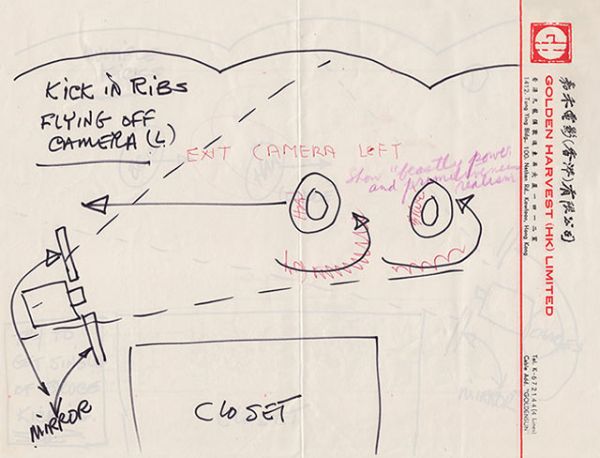 KICK IN RIBS
FLYING OFF
CAMERA (L)
EXIT CAMERA LEFT
Show "beastly power
and primitiveness
realism
MIRROR
CLOSET
嘉禾電影(香港)有限公司
GOLDEN HARVEST (HK) LIMITED
1412, Tung Ying Bldg., 100, Nathan Rd., Kowloon, Hong Kong
Tel. K-672144 (4 Lines)
Cable Add. "GOLDENSUN"